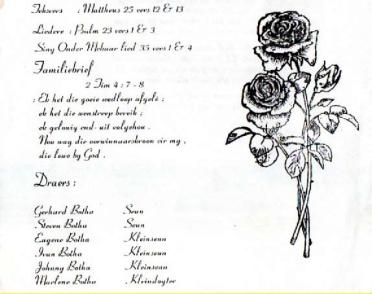 Teksvers : Mattheus 25 vers 12 & 13
Liedere : Psalm 23 vers 1 & 3
Sing Onder Mekaar lied 35 vers 1 & 4
Familiebrief
2 Tim 4 : 7 - 8
: Ek het die goeie wedloop afgelê ;
ek het die wenstreep bereik ;
ek gelowig end- uit volgehou .
Nou wag die oorwinnaarskroon vir my ,
die lewe by God .
Draers :
Gerhard Botha . Seun
Steven Botha . Seun
Eugene Botha . Kleinseun
Ivan Botha . Kleinseun
Johnny Botha . Kleinseun
Marlene Botha . Kleindogter